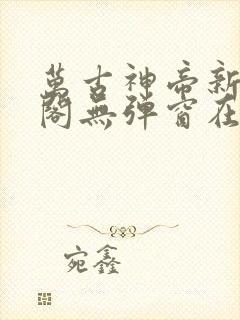 萬古神帝新
閣無彈窗在
宛鑫